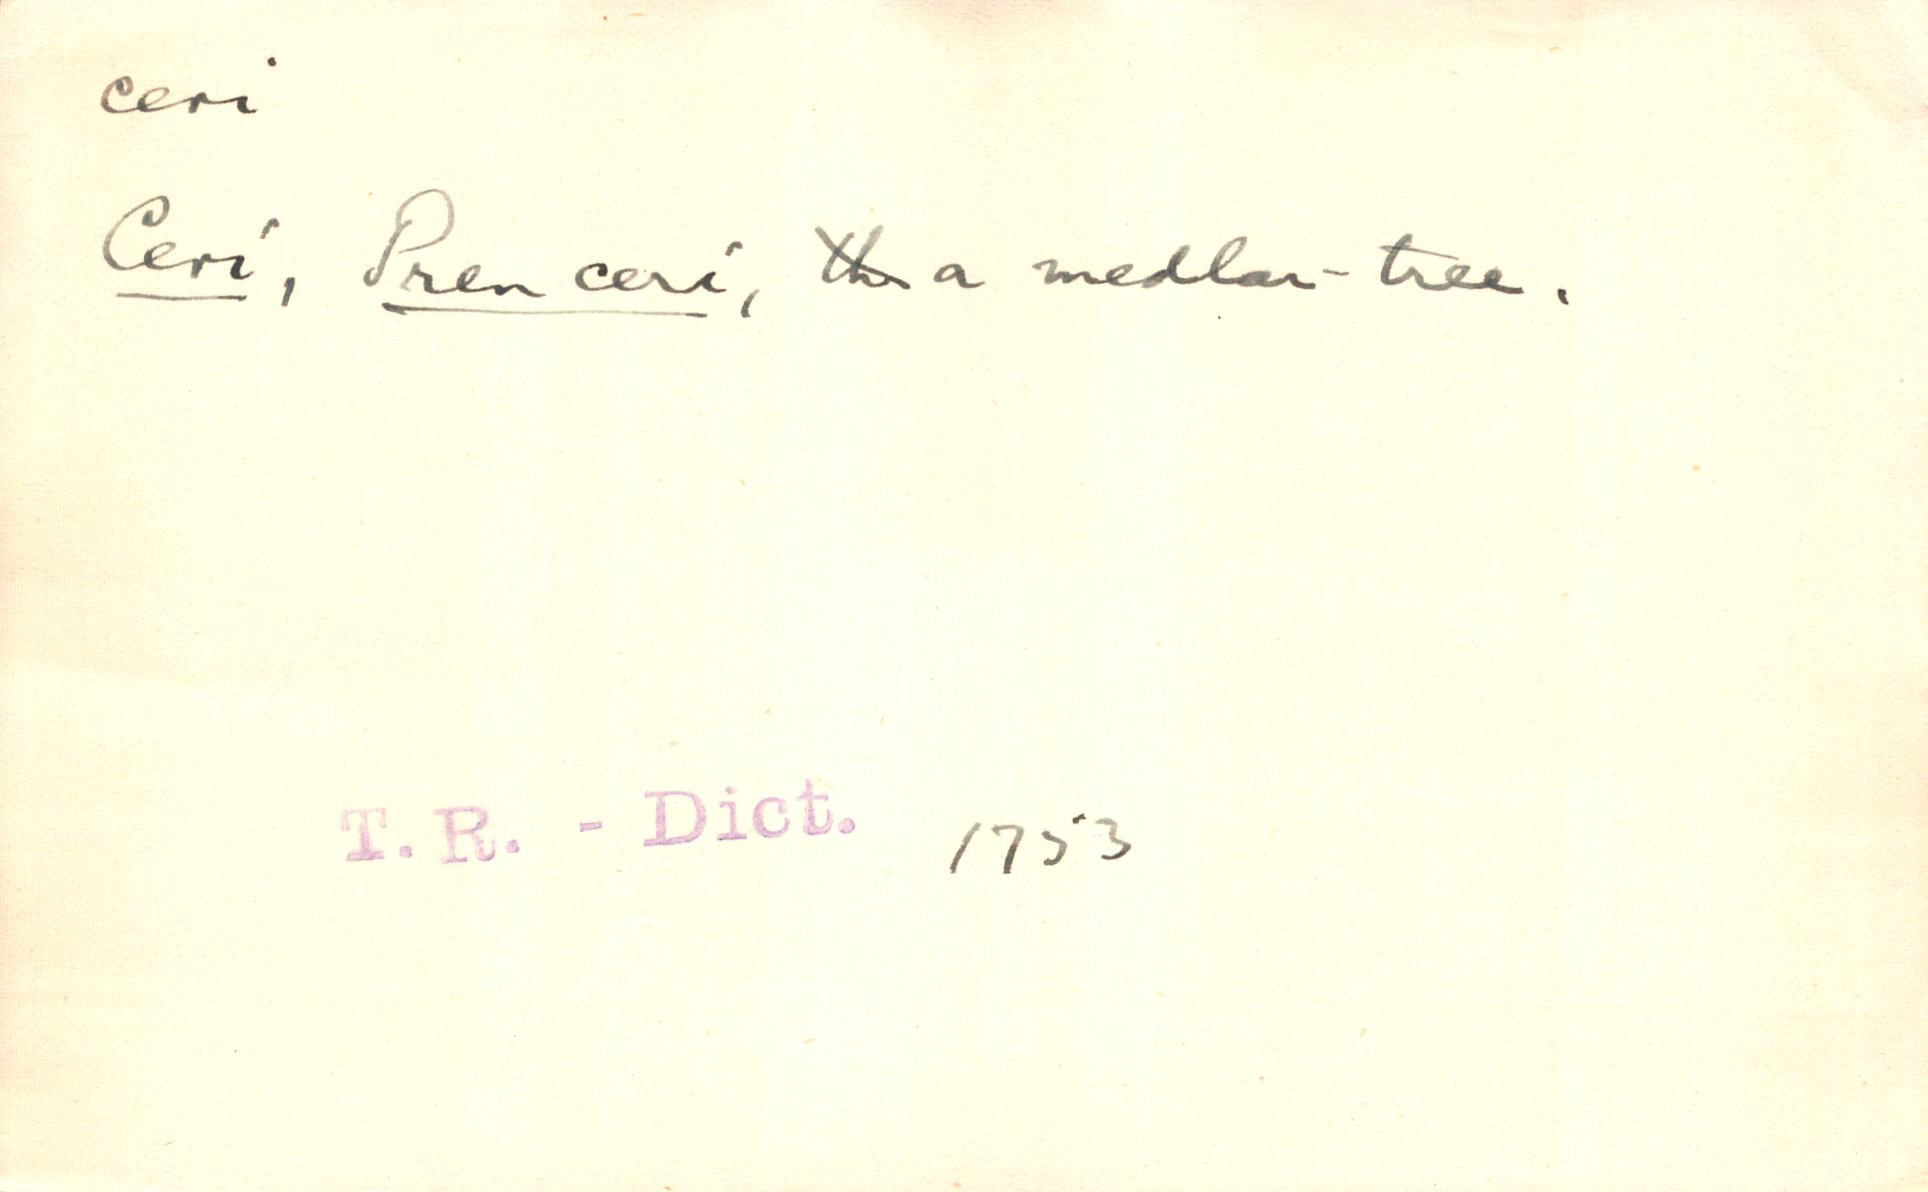 ceri
Ceri, Pren ceri, a medlar-tree.
T.R. - Dict. 1753